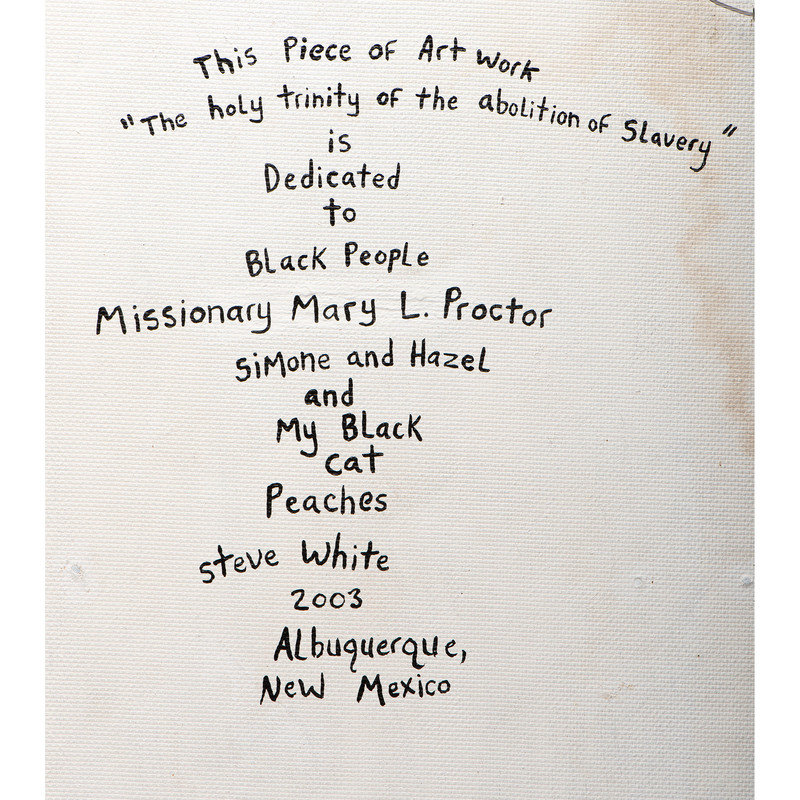 This Piece of Art Work
"The holy trinity of the abolition of Slavery"
is
Dedicated
to
Black People
Missionary Mary L. Proctor
Simone and Hazel
and
My Black
Cat
Peaches
Steve White
2003
Albuquerque,
New Mexico